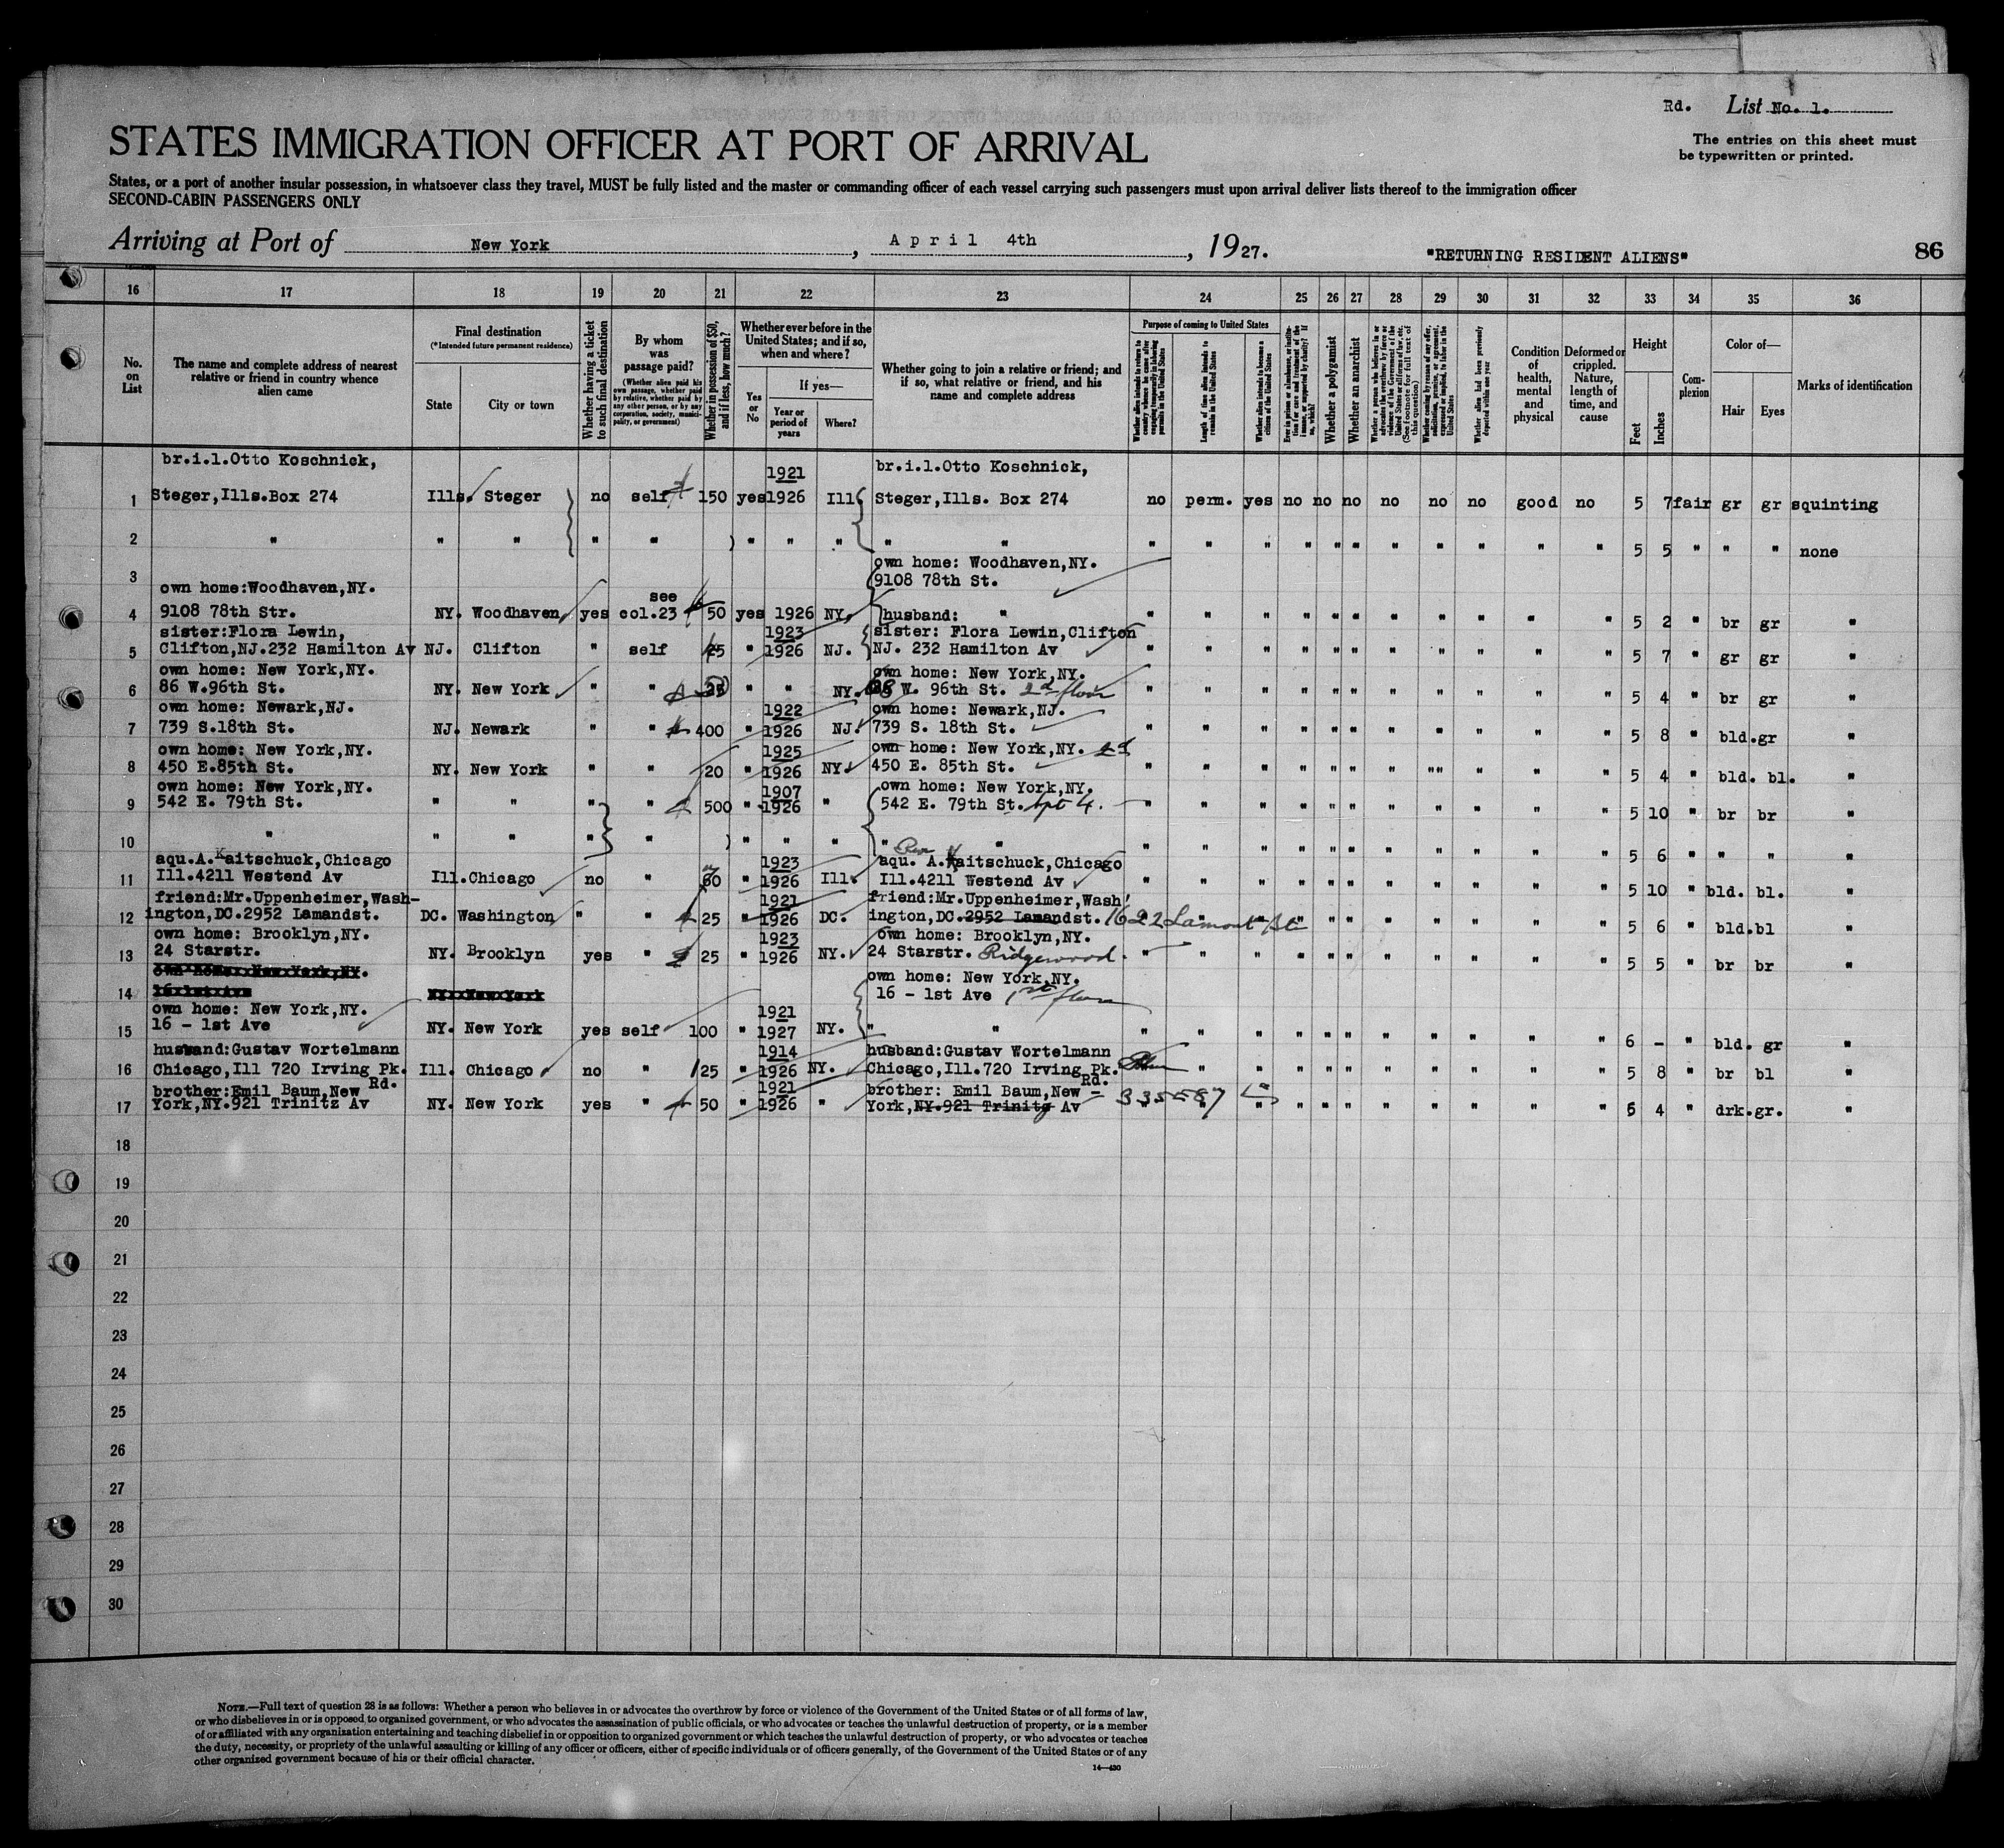 Rd. List No. 1.
The entries on this sheet must
be typewritten or printed.
STATES IMMIGRATION OFFICER AT PORT OF ARRIVAL
States, or a port of another insular possession, in whatsoever class they travel, MUST be fully listed and the master or commanding officer of each vessel carrying such passengers must upon arrival deliver lists thereof to the immigration officer
SECOND-CABIN PASSENGERS ONLY
Arriving at Port of New York, April 4th, 1927. "RETURNING RESIDENT ALIENS" 86
16 17 18 19 20 21 22 23 24 25 26 27 28 29 30 31 32 33 34 35 36
No. on List
The name and complete address of nearest relative or friend in country whence alien came
Final destination
(*Intended future permanent residence)
State
City or town
Whether having a ticket to such final destination
By whom was passage paid?
(Whether alien paid his own passage, whether paid by relative, whether paid by any other person, or by any corporation, society, municipality, or government)
Whether in possession of $50, and if less, how much?
Whether ever before in the United States; and if so, when and where?
Yes or No
If yes—
Year or period of years
Where?
Whether going to join a relative or friend; and if so, what relative or friend, and his name and complete address
Purpose of coming to United States
Whether alien intends to return to country whence he came after engaging temporarily in laboring pursuits in the United States
Length of time alien intends to remain in the United States
Whether alien intends to become a citizen of the United States
Whether a polygamist
Whether an anarchist
Whether alien had been previously deported within one year
Condition of health, mental and physical
Deformed or crippled. Nature, length of time, and cause
Height
Feet
Inches
Complexion
Color of—
Hair
Eyes
Marks of identification
br.i.l.Otto Koschnick, 1921 br.i.l.Otto Koschnick,
1 Steger,Ills.Box 274 Ills. Steger no self 150 yes 1926 Ill Steger,Ills. Box 274 no perm. yes no no no no no no good no 5 7 fair gr gr squinting
2 " " " " " " " " " " " " " " " " " " " " " 5 5 " " " none
own home: Woodhaven,NY.
3 9108 78th St.
own home:Woodhaven,NY. see
4 9108 78th Str. NY. Woodhaven yes col.23 50 yes 1926 NY. husband: " " " " " " " " " " " " 5 2 " br gr "
sister:Flora Lewin, 1923 sister: Flora Lewin,Clifton
5 Clifton,NJ.232 Hamilton Av NJ. Clifton " self 25 " 1926 NJ. NJ. 232 Hamilton Av " " " " " " " " " " " 5 7 " gr gr "
own home: New York,NY. own home: New York,NY.
6 86 W.96th St. NY. New York " " 50 " " NY. W. 96th St. 2d floor " " " " " " " " " " " 5 4 " br gr "
own home: Newark,NJ. 1922 own home: Newark,NJ.
7 739 S.18th St. NJ. Newark " " 400 " 1926 NJ. 739 S. 18th St. " " " " " " " " " " " 5 8 " bld. gr "
own home: New York,NY. 1925 own home: New York,NY.
8 450 E.85th St. NY. New York " " 20 " 1926 NY 450 E. 85th St. " " " " " " " "" " " " 5 4 " bld. bl. "
own home: New York,NY. 1907 own home: New York,NY.
9 542 E. 79th St. " " " " 500 " 1926 " 542 E. 79th St. Apt 4. " " " " " " " " " " " 5 10 " br br "
10 " " " " " " " " " " " " " " " " " " " " 5 6 " " " "
aqu.A.Kaitschuck,Chicago 1923 aqu. A.Kaitschuck,Chicago
11 Ill.4211 Westend Av Ill. Chicago no " 60 " 1926 Ill. Ill.4211 Westend Av " " " " " " " " " " " 5 10 " bld. bl. "
friend:Mr.Uppenheimer,Wash- 1921 friend:Mr.Uppenheimer,Wash
12 ington,DC.2952 Lamandst. DC. Washington " " 25 " 1926 DC. ington,DC.2952 Lamandst. 1622 Lamont St " " " " " " " " " " 5 6 " bld. bl "
own home: Brooklyn,NY. 1923 own home: Brooklyn,NY.
13 24 Starstr. NY. Brooklyn yes " 25 " 1926 NY. 24 Starstr. Ridgewood. " " " " " " " " " " " 5 5 " br br "
own home: New York,NY. own home: New York,NY.
14 16 1st Ave NY. New York 16 - 1st Ave 1st floor
own home: New York,NY. 1921
15 16 - 1st Ave NY. New York yes self 100 " 1927 NY. " " " " " " " " " " " " " 6 - " bld. gr "
husband:Gustav Wortelmann 1914 husband:Gustav Wortelmann
16 Chicago,Ill 720 Irving Pk. Ill. Chicago no " 125 " 1926 NY. Chicago,Ill.720 Irving Pk. " " " " " " " " " " 5 8 " br bl "
brother:Emil Baum,New Rd. 1921 brother: Emil Baum,New Rd.
17 York,NY.921 Trinitz Av NY. New York yes " 50 " 1926 " York,NY.921 Trinity Av " " " " " " " " " " 5 4 " drk. gr. "
18
19
20
21
22
23
24
25
26
27
28
29
30
NOTE.—Full text of question 28 is as follows: Whether a person who believes in or advocates the overthrow by force or violence of the Government of the United States or of all forms of law,
or who disbelieves in or is opposed to organized government, or who advocates the assassination of public officials, or who advocates or teaches the unlawful destruction of property, or is a member
of or affiliated with any organization entertaining and teaching disbelief in or opposition to organized government or which teaches the unlawful destruction of property, or who advocates or teaches
the duty, necessity, or propriety of the unlawful assaulting or killing of any officer or officers, either of specific individuals or of officers generally, of the Government of the United States or of any
other organized government because of his or their official character.
14—430